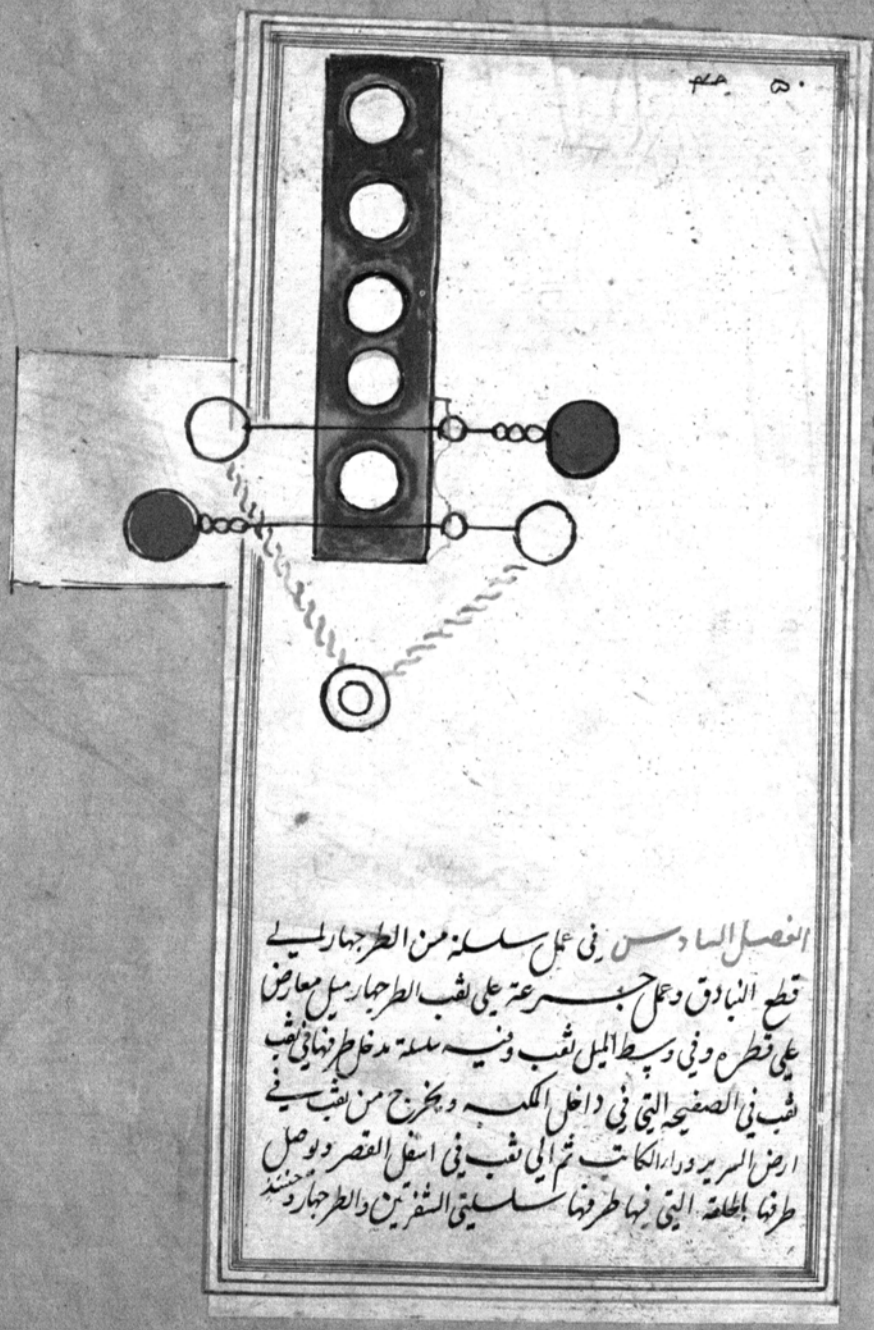 ٥٠
الفصل السادس في عمل سلسلة من الطرجهار الي
قطع البنادق وعمل جرعة علي ثقب الطرجهار ميل معارض
علي قطره وفي وسط الميل ثقب وفيه سلسلة مدخل طرفها في ثقب
ثقب في الصفيحه التي في داخل الكبه ويخرج من ثقب في
ارض السرير وراء الكاتب ثم الي ثقب في اسفل القصر ويوصل
طرفها بالحلقة التي فيها طرفها سلسلتي الشفرتين والطرجهار وحينئذ